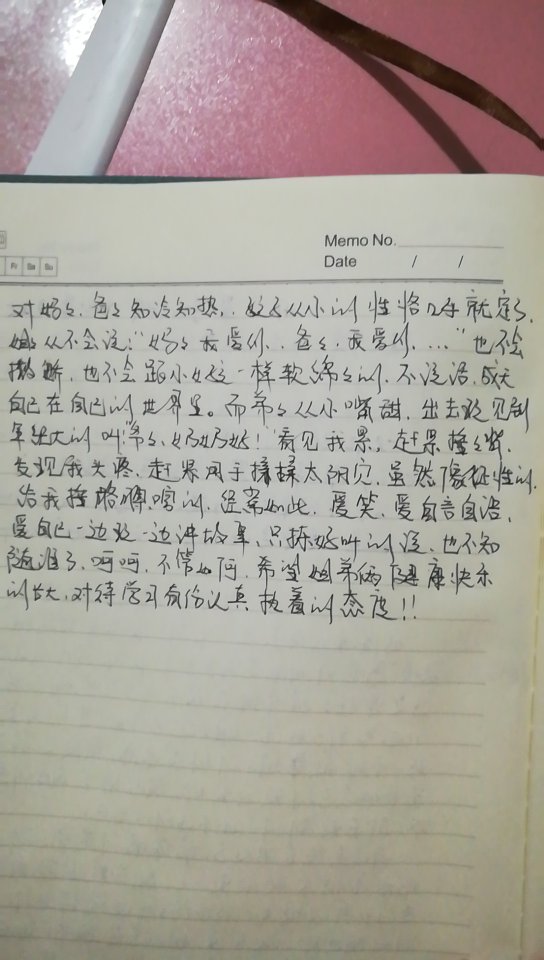 Memo No.
Date / /
Fr Sa Su
对妈々、爸々知冷知热,姐々从小的性格几乎就定了,
她从不会说:"妈々我爱你、爸々,我爱你,…"也不会
撒娇,也不会跟小女孩一样软绵々的,不说话,成天
自己在自己的世界里。而弟々从小嘴甜,出去玩见到
年纪大的叫"爷々,奶奶好!"看见我累,赶紧捶々背,
发现我头疼,赶紧用手揉揉太阳穴,虽然像征性的,
给我挠的,经常如此,爱笑,爱自言自语,
爱自己一边玩一边讲故事,只拣好听的说,也不知
随谁了,呵呵,不管如何,希望姐弟俩健康快乐
的长大,对待学习有份认真执着的态度!!